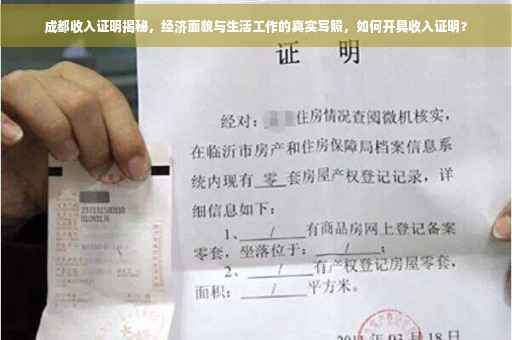 成都收入证明揭秘，经济面貌与生活工作的真实写照，如何开具收入证明？
证 明
经对：住房情况查阅微机核实，
在临沂市房产和住房保障局档案信息系
统内现有 零 套房屋产权登记记录，详
细信息如下：
1、 / 有商品房网上登记备案
零套，坐落位于： / ；
2、 / 有产权登记房屋零套，
面积： / 平方米。
03月18日